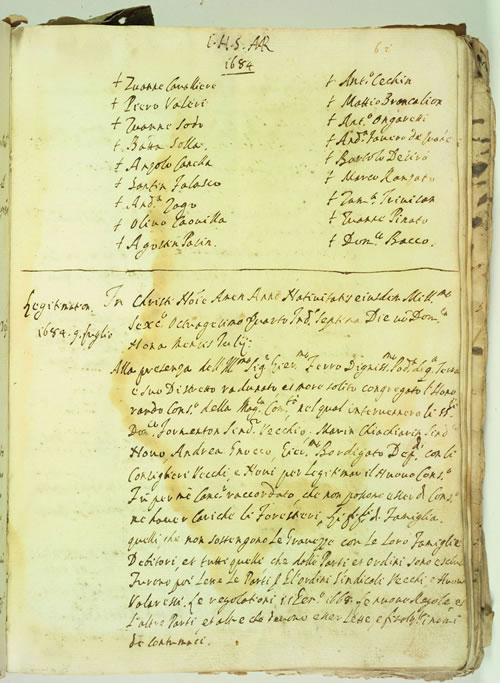 I.H.S. AR
62
1684
+ Zuanne Cavalliere
+ Piero Valeri
+ Zuanne Sodr
+ Batta Sella
+ Anzolo Canella
+ Santin Falasco
+ And.a Zago
+ Olivo
+ Agosten Pasin
+ Ant.o Cechin
+ Mattio Broncalion
+ Ant.o Ongaretti
+ And.a
+ Bortolo
+ Marco Ranzato
+ Zam.a Trivilan
+ Zuanne Pinato
+ Dom.co Bacco.
Legitimation
1684. 9. Luglio
In Christi Nõie Amen Anno Nativitatis eiusdem Mill.mo
Sex.o Octuagesimo Quarto Ind.e Septima Die Dom.ca
Nona Mensis Julij.
Alla presenza dell' Ill.mo Sig.r Ferro Digniss.mo Pod.à di q.a Terra
e suo Distretto radunato et more solito congregato l'Hono
rando Cons.o della Mag.ca Com.tà nel qual intervennero li
Dom.co Formenton Sind.co Vecchio. Marin Chiachiarin Sind.co
Novo Andrea Bordigato Dep.ti con li
Conseglieri Vecchi, e Novi per Legitimar il Nuovo Cons.o
Fù per mè Canc.r raccordato, che non possono esser di Cons.o
ne haver Cariche li Forestieri, di Famiglia.
quelli che non sostengono Le Gravezze con Le Loro Famiglie
Debitori, et tutti quelli che dalle Parti et Ordini sono esclusi
Furono poi Lette Le Parti, Et Ordini Sindicali Vecchi, e Nuovi
Valaressi. Le regolationi 1668. Le nuove Regole, et
L'altre Parti et altro che devono esser Lette,
de contumaci.